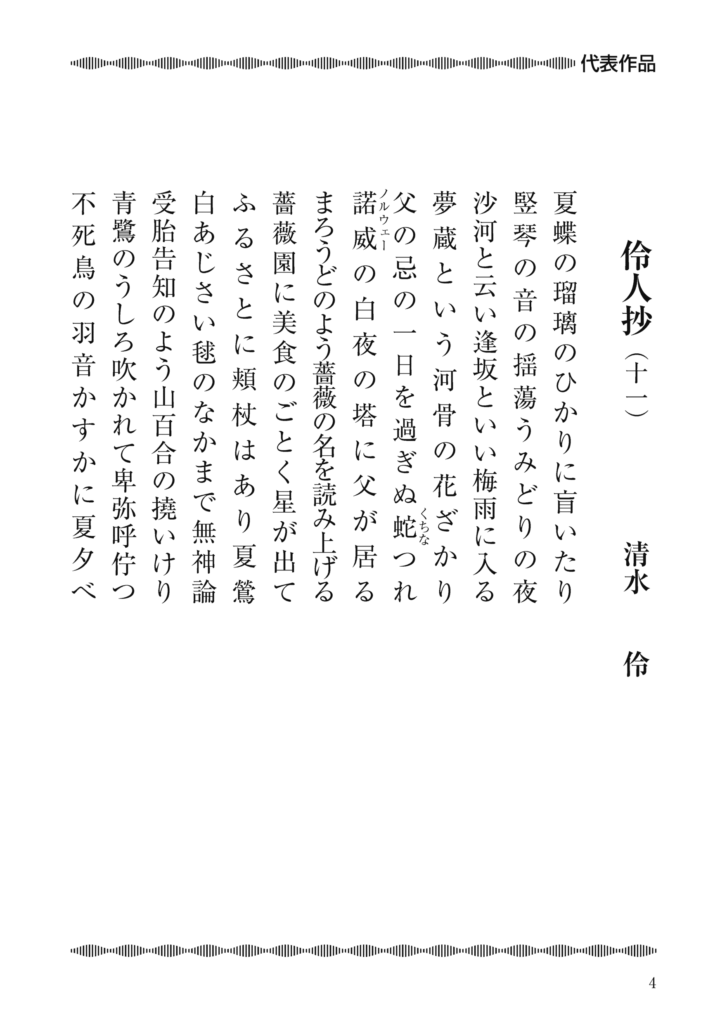 代表作品
伶人抄（十一）　清水　伶
夏蝶の瑠璃のひかりに盲いたり
竪琴の音の揺蕩うみどりの夜
沙河と云い逢坂といい梅雨に入る
夢蔵という河骨の花ざかり
父の忌の一日を過ぎぬ蛇つれ
くちな
諾威の白夜の塔に父が居る
ノルウェー
まろうどのよう薔薇の名を読み上げる
薔薇園に美食のごとく星が出て
ふるさとに頬杖はあり夏鶯
白あじさい毬のなかまで無神論
受胎告知のよう山百合の撓いけり
青鷺のうしろ吹かれて卑弥呼佇つ
不死鳥の羽音かすかに夏夕べ
4